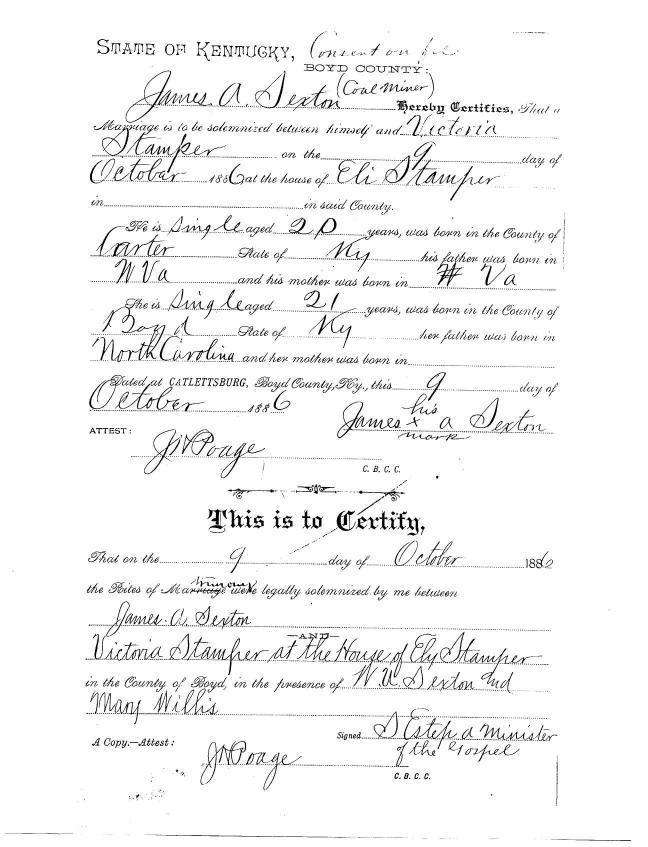 STATE OF KENTUCKY, Consent on file
BOYD COUNTY:
(Coal Miner)
James. A. Sexton Hereby Certifies, That a
Marriage is to be solemnized between himself and Victoria
Stamper on the 9 day of
October 1886 at the house of Eli Stamper
in in said County.
He is Single aged 20 years, was born in the County of
Carter State of Ky his father was born in
W Va and his mother was born in W Va
She is Single aged 21 years, was born in the County of
Boyd State of Ky her father was born in
North Carolina and her mother was born in
Dated at CATLETTSBURG, Boyd County, Ky., this 9 day of
October 1886
his
James x a Sexton
mark
ATTEST:
JW Poage
C. B. C. C.
This is to Certify,
That on the 9 day of October 1886
the Rites of Marriage were legally solemnized by me between
James. A. Sexton
AND
Victoria Stamper at the House of Ely Stamper
in the County of Boyd, in the presence of W. U. Sexton and
Mary Willis
Signed S Estep a Minister
of the Gospel
A Copy.—Attest:
JW Poage
C. B. C. C.